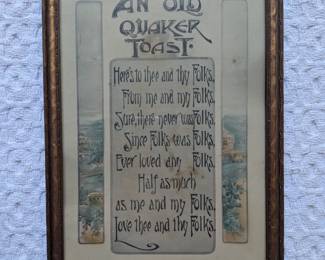 AN OLD
QUAKER
TOAST.
Here's to thee and thy Folks,
From me and my Folks,
Sure, there never was Folks,
Since Folks was Folks,
Ever loved any Folks,
Half as much
as me and my Folks,
Love thee and thy Folks.